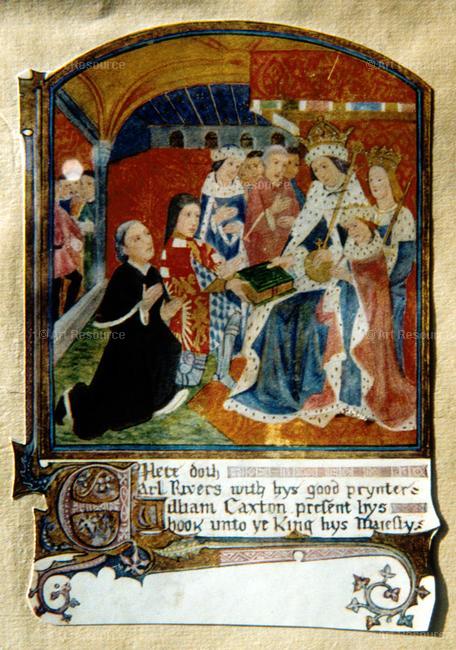 © Art Resource
© Art Resource
Here doth
Earl Rivers with hys good prynter:
William Caxton present hys
book unto ye King hys Majesty:
© Art Resource
© Art Resource
© Art Resource
© Art Resource
Art Resource